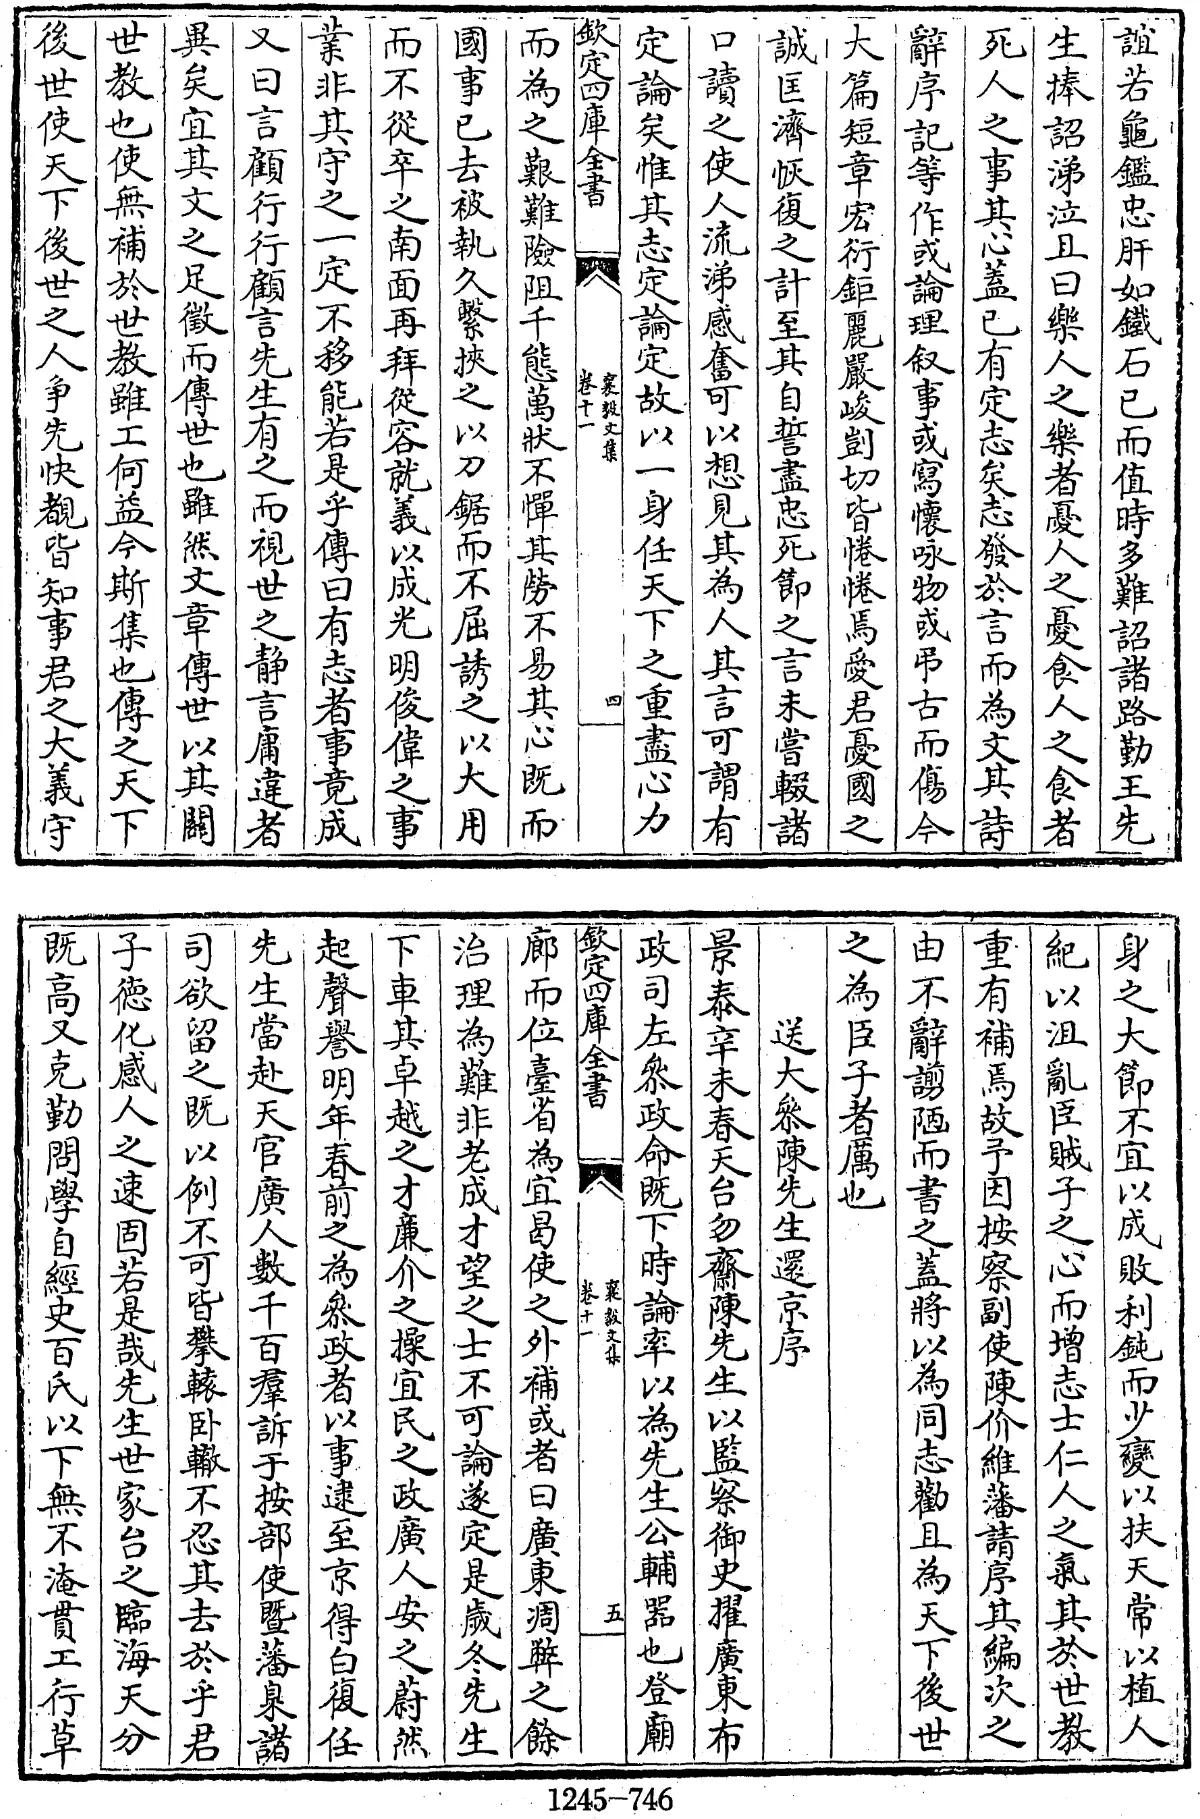 誼若龜鑑忠肝如鐵石已而值時多難詔諸路勤王先
生捧詔涕泣且曰樂人之樂者憂人之憂食人之食者
死人之事其心蓋已有定志矣志發於言而為文其詩
辭序記等作或論理叙事或寫懷咏物或弔古而傷今
大篇短章宏衍鉅麗嚴峻剴切皆惓惓焉愛君憂國之
誠匡濟恢復之計至其自誓盡忠死節之言未嘗輟諸
口讀之使人流涕感奮可以想見其為人其言可謂有
定論矣惟其志定論定故以一身任天下之重盡心力
欽定四庫全書
襄毅文集
卷十一
四
而為之艱難險阻千態萬狀不憚其勞不易其心既而
國事已去被執久繫挾之以刀鋸而不屈誘之以大用
而不從卒之南面再拜從容就義以成光明俊偉之事
業非其守之一定不移能若是乎傳曰有志者事竟成
又曰言顧行行顧言先生有之而視世之靜言庸違者
異矣宜其文之足徵而傳世也雖然文章傳世以其關
世教也使無補於世教雖工何益今斯集也傳之天下
後世使天下後世之人爭先快覩皆知事君之大義守
身之大節不宜以成敗利鈍而少變以扶天常以植人
紀以沮亂臣賊子之心而增志士仁人之氣其於世教
重有補焉故予因按察副使陳价維藩請序其編次之
由不辭謭陋而書之蓋將以為同志勸且為天下後世
之為臣子者厲也
送大叅陳先生還京序
景泰辛未春天台勿齋陳先生以監察御史擢廣東布
政司左叅政命既下時論率以為先生公輔器也登廟
欽定四庫全書
襄毅文集
卷十一
五
廊而位臺省為宜曷使之外補或者曰廣東凋弊之餘
治理為難非老成才望之士不可論遂定是歲冬先生
下車其卓越之才廉介之操宜民之政廣人安之蔚然
起聲譽明年春前之為叅政者以事逮至京得白復任
先生當赴天官廣人數千百羣訴于按部使暨藩臬諸
司欲留之既以例不可皆攀轅臥轍不忍其去於乎君
子德化感人之速固若是哉先生世家台之臨海天分
既高又克勤問學自經史百氏以下無不淹貫工行草
1245-746